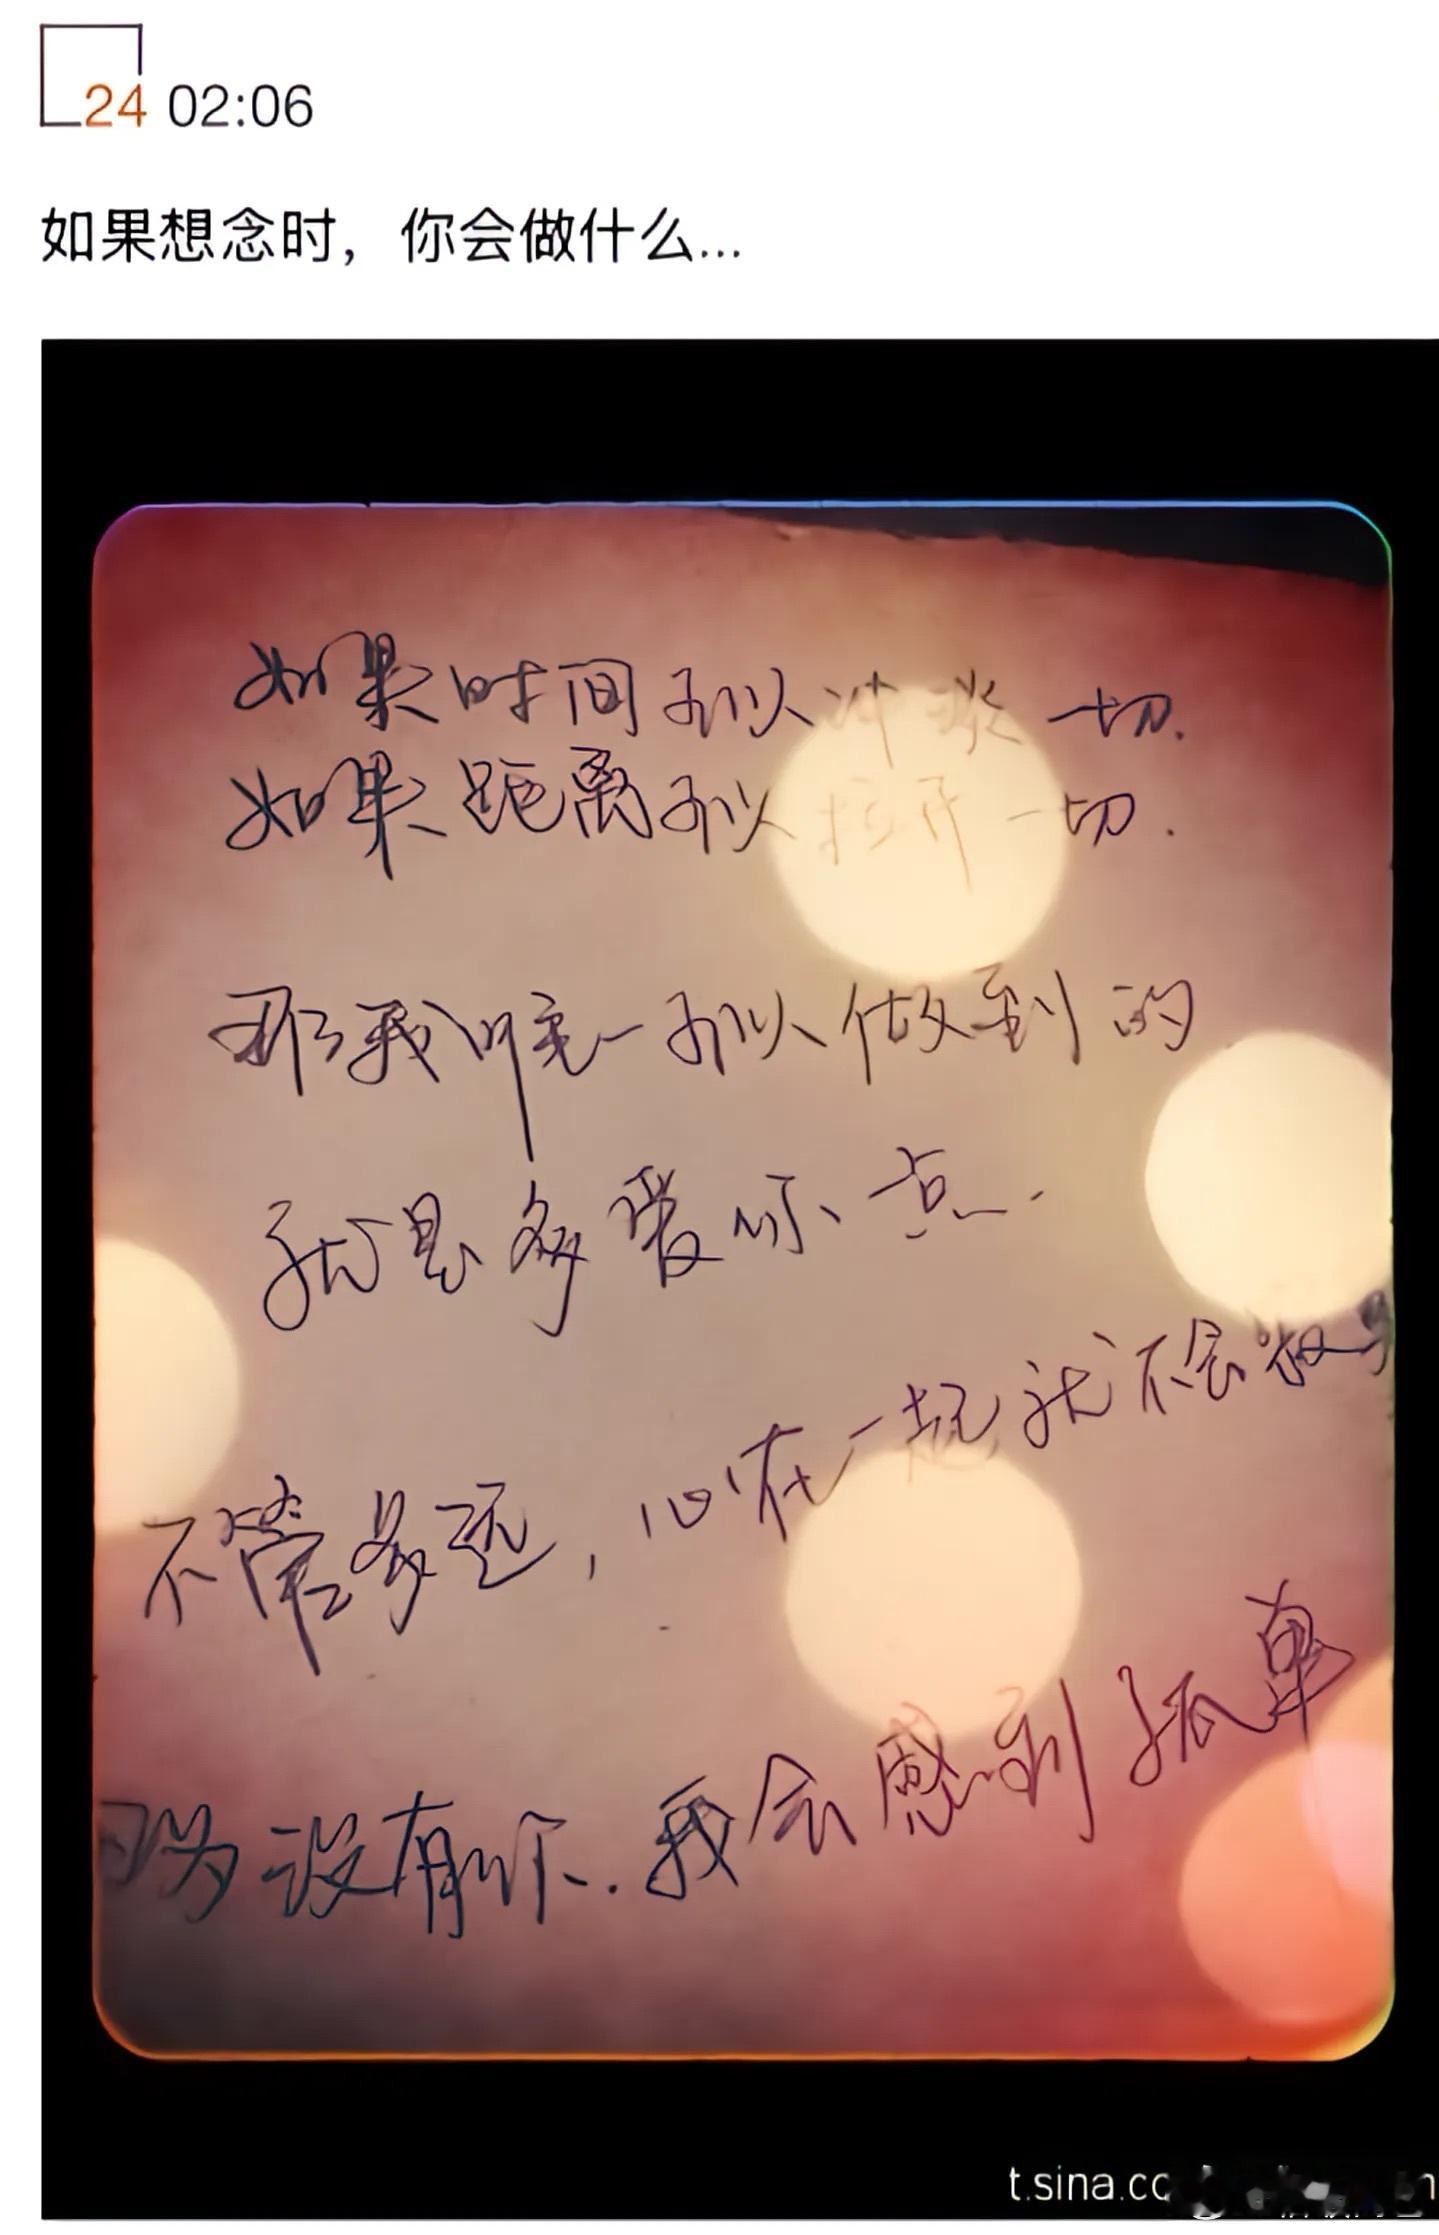 24 02:06
如果想念时，你会做什么...
如果时间可以冲淡一切.
如果距离可以拉开一切.
那我唯一可以做到的
就是多爱你一点.
不管多远，心在一起就不会寂寞
因为没有你.我会感到孤单
t.sina.co